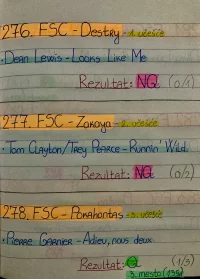 276. FSC - Destry - 1. učešće
• Dean Lewis - Looks Like Me
Rezultat: NQ (0/1)
277. FSC - Zakaya - 2. učešće
• Tom Clayton/Trey Pearce - Runnin' Wild.
Rezultat: NQ (0/2)
278. FSC - Pokahontas - 3. učešće
• Pierre Garnier - Adieu, nous deux
Rezultat: Q (1/3)
3. mesto (135)